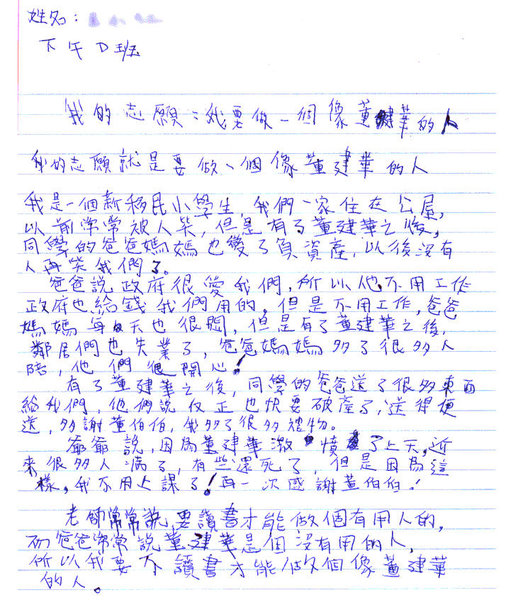 姓名:
下午D班
我的志願:我要做一個像董建華的人
我的志願就是要做一個像董建華的人
我是一個新移民小學生,我們一家住在公屋,
以前常常被人笑,但是有了董建華之後,
同學的爸爸媽媽也變了負資產,以後沒有
人再笑我們了。
爸爸說,政府很愛我們,所以他不用工作
政府也給錢我們用的,但是不用工作,爸爸
媽媽每天也很悶,但是有了董建華之後,
鄰居們也失業了,爸爸媽媽多了很多人
陪,他們很開心!
有了董建華之後,同學的爸爸送了很多東西
給我們,他們說反正也快要破產了,送得便
送,多謝董伯伯,我多了很多禮物。
爺爺說,因為董建華激憤了上天,近
來很多人病了,有些還死了,但是因為這
樣,我不用上課了!再一次感謝董伯伯!
老師常常說,要讀書才能做個有用人的,
而爸爸常常說董建華是個沒有用的人,
所以我要不讀書才能做個像董建華
的人。